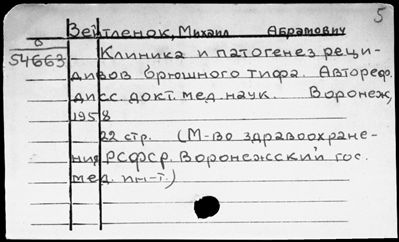 5
Зейтленок, Михаил Абрамович
О
54663
Клиника и патогенез реци-
дивов брюшного тифа. Автореф.
дисс. докт. мед. наук. Воронеж,
1958
22 стр. (М-во здравоохране-
ния РСФСР. Воронежсский гос.
мед. ин-т.)